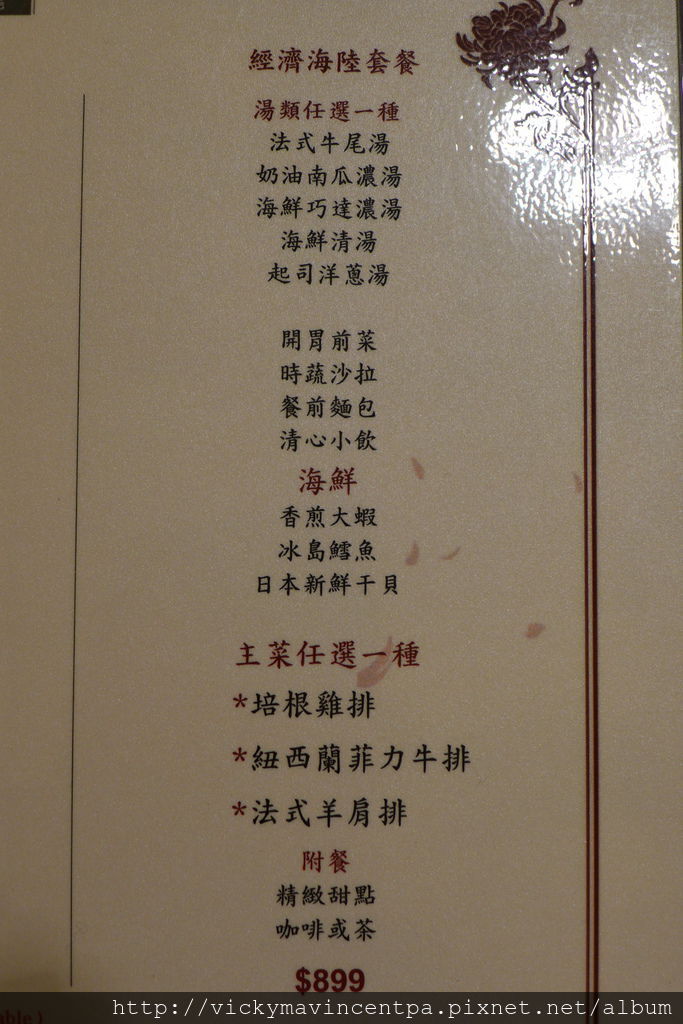 經濟海陸套餐
湯類任選一種
法式牛尾湯
奶油南瓜濃湯
海鮮巧達濃湯
海鮮清湯
起司洋蔥湯
開胃前菜
時蔬沙拉
餐前麵包
清心小飲
海鮮
香煎大蝦
冰島鱈魚
日本新鮮干貝
主菜任選一種
*培根雞排
*紐西蘭菲力牛排
*法式羊肩排
附餐
精緻甜點
咖啡或茶
$899
http://vickymavincentpa.pixnet.net/album